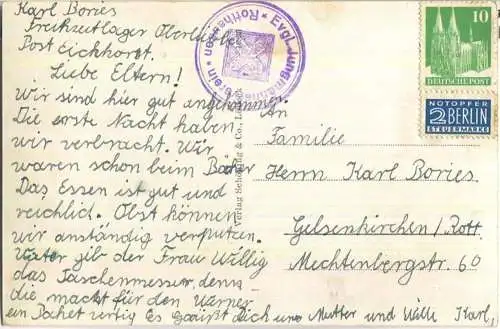 Karl Bories
Freizeitlager Oberlübbe
Post Eickhorst.
Liebe Eltern!
Wir sind hier gut angekommen.
Die erste Nacht haben
wir verbracht. Wir
waren schon beim Baden
Das Essen ist gut und
reichlich. Obst können
wir anständig verputzen.
Vater gib der Frau Willig
das Taschenmesser, denn
die macht für den Werner
ein Paket fertig Es grüßt dich und Mutter und Karl,
Evgl. Jungmännerverein * Rotthausen *
Verlag
10
DEUTSCHE POST
NOTOPFER
2 BERLIN
STEUERMARKE
An
Familie
Herrn Karl Bories
Gelsenkirchen/Rott.
Mechtenbergstr. 60